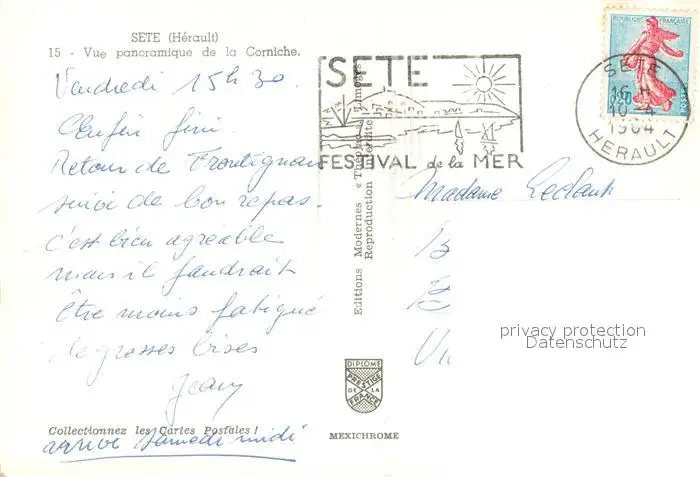 SETE (Hérault)
15 - Vue panoramique de la Corniche.
Vendredi 15h30.
Enfin fini.
Retour de Frontignan
suivi de bon repas.
c'est bien agréable
mais il faudrait
être moins fatigué
de grosses bises
Jeany
Collectionnez les Cartes Postales !
arrive samedi midi
Editions Modernes « Théojac » Limoges
Reproduction interdite
SETE
FESTIVAL de la MER
DIPLOME
PRESTIGE
DE LA
FRANCE
MEXICHROME
REPUBLIQUE FRANÇAISE
0,20
POSTES
SETE
16 H
10-4
1964
HERAULT
Madame
privacy protection
Datenschutz